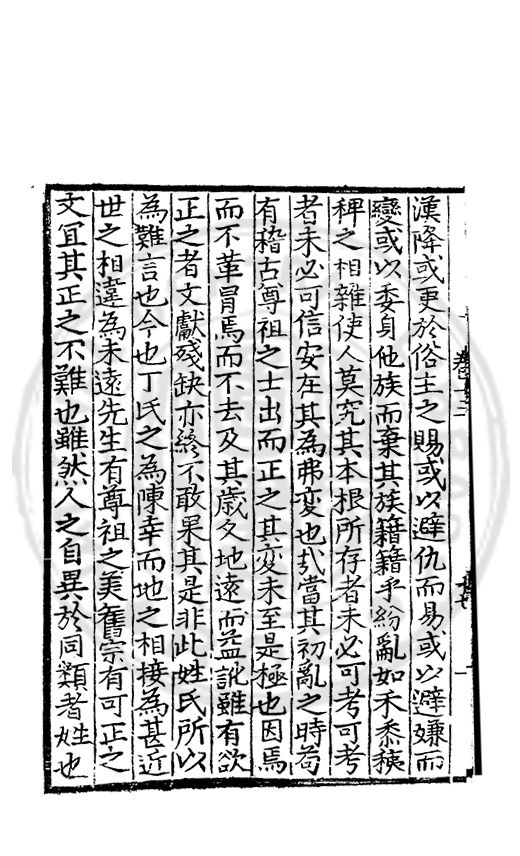 漢降或更於俗主之賜或以避仇而易或以避嫌而
變或以委身他族而棄其族籍籍乎紛亂如禾黍稊
稗之相雜使人莫究其本根所存者未必可考可考
者未必可信安在其為弗变也㢤當其初亂之時苟
有稽古尊祖之士出而正之其変未至是極也因焉
而不革冒焉而不去及其歳久地遠而益訛雖有欲
正之者文獻殘缺亦終不敢果其是非此姓氏所以
為難言也今也丁氏之為陳幸而地之相接為甚近
世之相違為未遠先生有尊祖之美舊宗有可正之
文冝其正之不難也雖然人之自異於同類者姓也